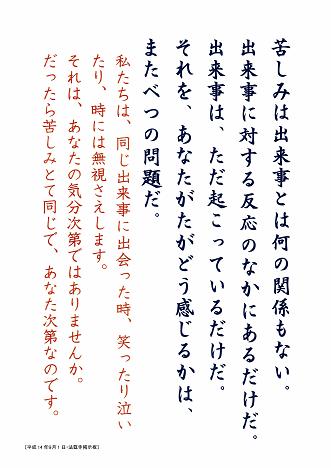 苦しみは出来事とは何の関係もない。
出来事に対する反応のなかにあるだけだ。
出来事は、ただ起こっているだけだ。
それを、あなたがたがどう感じるかは、
またべつの問題だ。
私たちは、同じ出来事に出会った時、笑ったり泣い
たり、時には無視さえします。
それは、あなたの気分次第ではありませんか。
だったら苦しみとて同じで、あなた次第なのです。